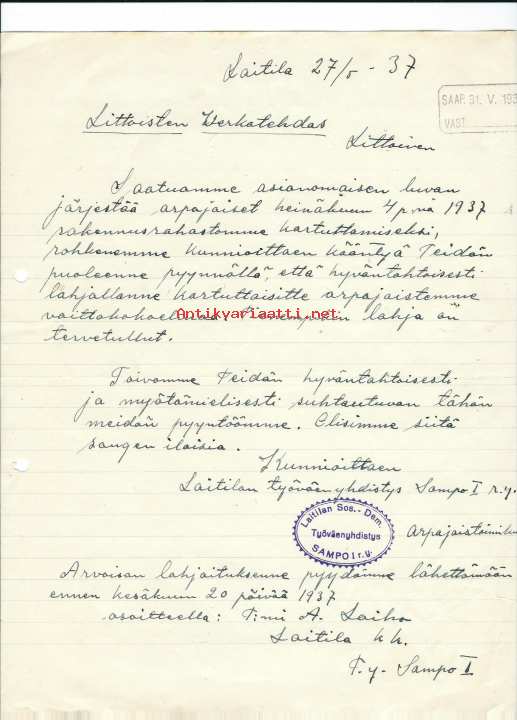 Laitila 27/5 - 37
SAAP. 31. V. 193
VAST.
Littoisten Verkatehdas
Littoinen
Saatuamme asianomaisen luvan
järjestää arpajaiset heinäkuun 4 p:nä 1937
rakennusrahastomme kartuttamiseksi,
rohkenemme kunnioittaen kääntyä Teidän
puoleenne pyynnöllä, että hyväntahtoisesti
lahjallanne kartuttaisitte arpajaistemme
voittokokoelmaa lahja on
Antikvariaatti.net
tervetullut.
Toivomme Teidän hyväntahtoisesti
ja myötämielisesti suhtautuvan tähän
meidän pyyntöömme. Olisimme siitä
sangen iloisia.
Kunnioittaen
Laitilan työväenyhdistys Sampo I r.y.
Laitilan Sos.-Dem.
Työväenyhdistys
SAMPO I r.y.
Arvoisan lahjoituksenne pyydämme lähettämään
ennen kesäkuun 20 päivää 1937
osoitteella: T:mi A. Laiho
Laitila kk.
T.y. Sampo I